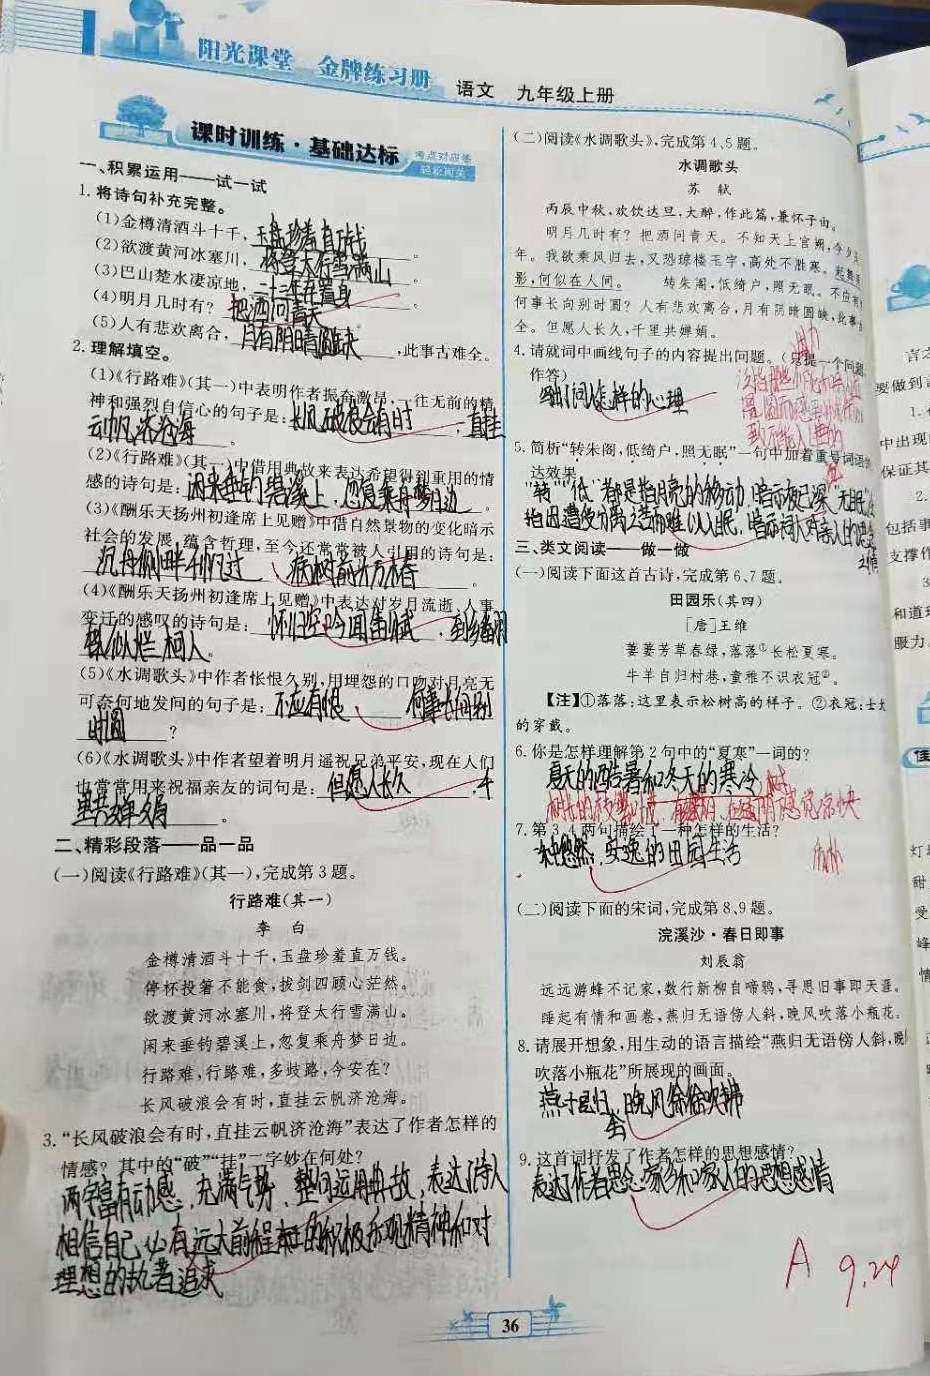 阳光课堂 金牌练习册 语文 九年级上册
课时训练·基础达标 考点对应练 轻松闯关
一、积累运用——试一试
1. 将诗句补充完整。
(1)金樽清酒斗十千，玉盘珍羞直万钱。
(2)欲渡黄河冰塞川，将登太行雪满山。
(3)巴山楚水凄凉地，二十三年弃置身。
(4)明月几时有？把酒问青天。
(5)人有悲欢离合，月有阴晴圆缺，此事古难全。
2. 理解填空。
(1)《行路难》(其一)中表明作者振奋激昂、一往无前的精
神和强烈自信心的句子是：长风破浪会有时，直挂
云帆济沧海。
(2)《行路难》(其一)中借用典故来表达希望得到重用的情
感的诗句是：闲来垂钓碧溪上，忽复乘舟梦日边。
(3)《酬乐天扬州初逢席上见赠》中借自然景物的变化暗示
社会的发展，蕴含哲理，至今还常常被人引用的诗句是：
沉舟侧畔千帆过，病树前头万木春。
(4)《酬乐天扬州初逢席上见赠》中表达对岁月流逝、人事
变迁的感叹的诗句是：怀旧空吟闻笛赋，到乡翻
似烂柯人。
(5)《水调歌头》中作者怅恨久别，用埋怨的口吻对月亮无
可奈何地发问的句子是：不应有恨，何事长向别
时圆？
(6)《水调歌头》中作者望着明月遥祝兄弟平安，现在人们
也常常用来祝福亲友的词句是：但愿人长久，千
里共婵娟。
二、精彩段落——品一品
(一)阅读《行路难》(其一)，完成第3题。
行路难(其一)
李 白
金樽清酒斗十千，玉盘珍羞直万钱。
停杯投箸不能食，拔剑四顾心茫然。
欲渡黄河冰塞川，将登太行雪满山。
闲来垂钓碧溪上，忽复乘舟梦日边。
行路难，行路难，多歧路，今安在？
长风破浪会有时，直挂云帆济沧海。
3. “长风破浪会有时，直挂云帆济沧海”表达了作者怎样的
情感？其中的“破”“挂”二字妙在何处？
两字富有动感，充满气势，整句运用典故，表达诗人
相信自己必有远大前程的积极乐观精神和对
理想的执着追求
(二)阅读《水调歌头》，完成第4、5题。
水调歌头
苏 轼
丙辰中秋，欢饮达旦，大醉，作此篇，兼怀子由。
明月几时有？把酒问青天。不知天上宫阙，今夕是
年。我欲乘风归去，又恐琼楼玉宇，高处不胜寒。起舞弄
影，何似在人间。 转朱阁，低绮户，照无眠。不应有
何事长向别时圆？人有悲欢离合，月有阴晴圆缺，此事古
全。但愿人长久，千里共婵娟。
4. 请就词中画线句子的内容提出问题。(只提一个问题
作答)
怎样的心理
5. 简析“转朱阁，低绮户，照无眠。”一句中加着重号词语的
达效果。
“转”“低”都是指月亮的移动，暗示夜已深“无眠”
指因遭受离之苦而难以入眠，暗示词人对亲人的思念
之情
三、类文阅读——做一做
(一)阅读下面这首古诗，完成第6、7题。
田园乐(其四)
[唐]王维
萋萋芳草春绿，落落①长松夏寒。
牛羊自归村巷，童稚不识衣冠②。
【注】①落落：这里表示松树高的样子。②衣冠：士大
的穿戴。
6. 你是怎样理解第2句中的“夏寒”一词的？
夏天的酷暑和冬天的寒冷
7. 第3、4两句描绘了一种怎样的生活？
一种悠然，安逸的田园生活
(二)阅读下面的宋词，完成第8、9题。
浣溪沙·春日即事
刘辰翁
远远游蜂不记家，数行新柳自啼鸦，寻思旧事即天涯。
睡起有情和画卷，燕归无语傍人斜，晚风吹落小瓶花。
8. 请展开想象，用生动的语言描绘“燕归无语傍人斜，晚
吹落小瓶花”所展现的画面。
9. 这首词抒发了作者怎样的思想感情？
表达了作者思念家乡和家人的思想感情
A 9.24
36